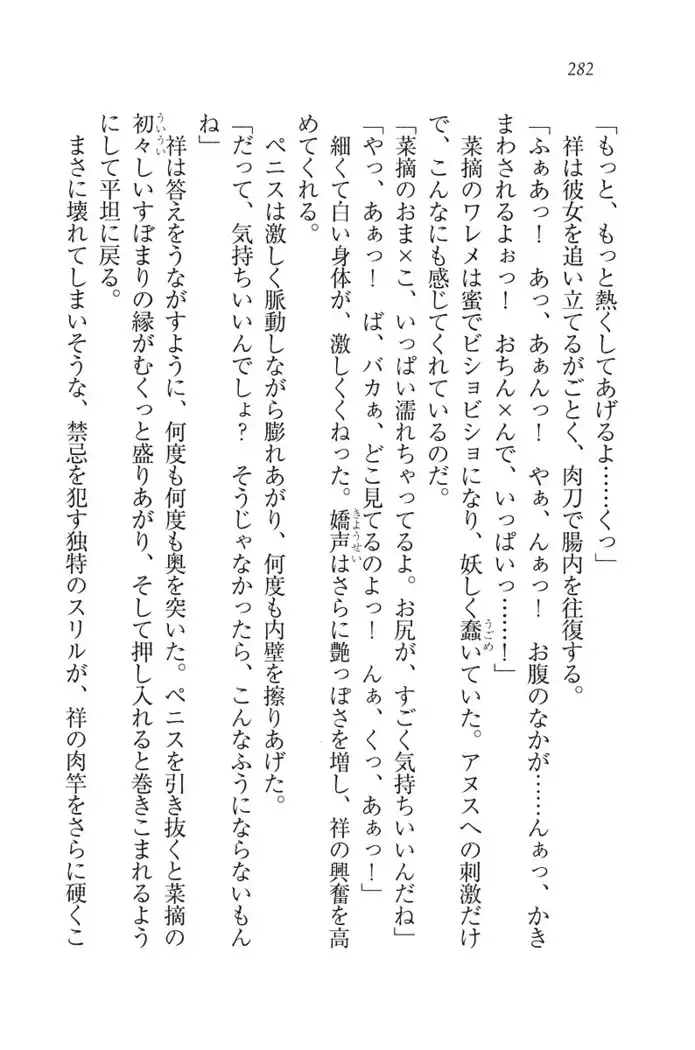 282
「もっと、もっと熱くしてあげるよ……くっ」
祥は彼女を追い立てるがごとく、肉刀で腸内を往復する。
「ふぁあっ！　あっ、あぁんっ！　やぁ、んぁっ！　お腹のなかが……んぁっ、かき
まわされるよぉっ！　おちん×んで、いっぱいっ……！」
菜摘のワレメは蜜でビショビショになり、妖しく蠢いていた。アヌスへの刺激だけ
で、こんなにも感じてくれているのだ。
「菜摘のおま×こ、いっぱい濡れちゃってるよ。お尻が、すごく気持ちいいんだね」
「やっ、あぁっ！　ば、バカぁ、どこ見てるのよっ！　んぁ、くっ、あぁっ！」
細くて白い身体が、激しくくねった。嬌声はさらに艶っぽさを増し、祥の興奮を高
めてくれる。
ペニスは激しく脈動しながら膨れあがり、何度も内壁を擦りあげた。
「だって、気持ちいいんでしょ？　そうじゃなかったら、こんなふうにならないもん
ね」
祥は答えをうながすように、何度も何度も奥を突いた。ペニスを引き抜くと菜摘の
初々しいすぼまりの縁がむくっと盛りあがり、そして押し入れると巻きこまれるよう
にして平坦に戻る。
まさに壊れてしまいそうな、禁忌を犯す独特のスリルが、祥の肉竿をさらに硬くこ